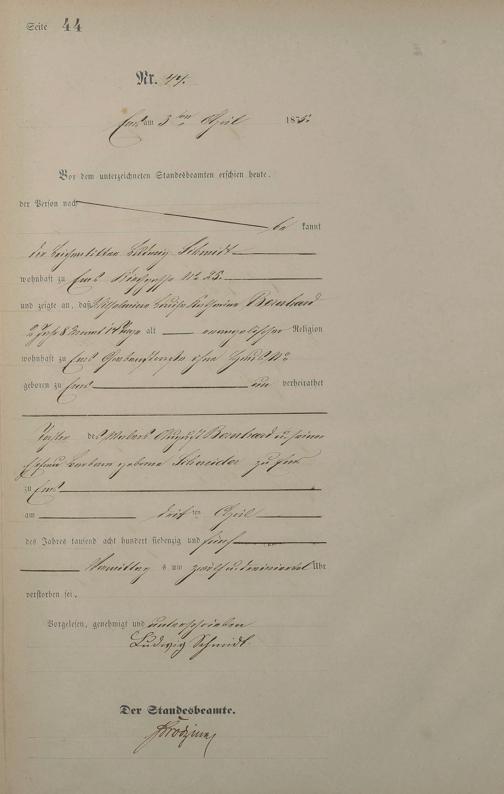 Seite 44
Nr. 44.
Ems am 3ten April 1875.
Vor dem unterzeichneten Standesbeamten erschien heute,
der Person nach
be kannt
der Ludwig Schmidt
wohnhaft zu Ems No 25.
und zeigte an, daß Wilhelmine Louise Katharine Bernhard
2 Jahre 8 Monat 14 Tage alt evangelischer Religion
wohnhaft zu Ems ohne Haus No
geboren zu Ems un verheirathet
Tochter des August Bernhard u. seiner
Ehefrau Barbara geborne Schneider zu Ems
zu Ems
am dritten April
des Jahres tausend acht hundert siebenzig und fünf
Vormittags um zwölf u. dreiviertel Uhr
verstorben sei.
Vorgelesen, genehmigt und unterschrieben
Ludwig Schmidt
Der Standesbeamte.